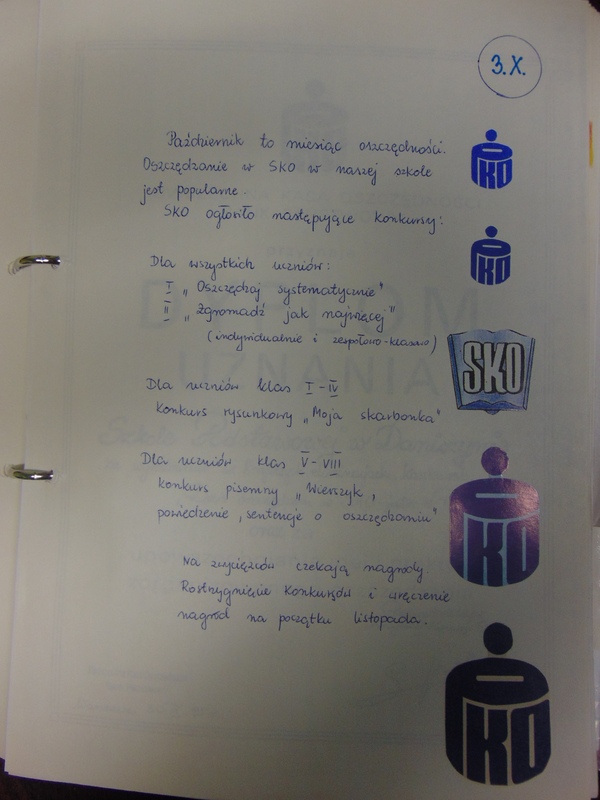 3.X.
Październik to miesiąc oszczędności.
Oszczędzanie w SKO w naszej szkole
jest popularne.
SKO ogłosiło następujące konkursy:
Dla wszystkich uczniów:
I „Oszczędzaj systematycznie"
II „Zgromadź jak najwięcej"
(indywidualnie i zespołowo-klasowo)
Dla uczniów klas I-IV
konkurs rysunkowy „Moja skarbonka"
Dla uczniów klas V-VIII
konkurs pisemny „Wierszyk,
powiedzenie, sentencje o oszczędzaniu"
Na zwycięzców czekają nagrody.
Rostrzygnięcie konkursów i wręczenie
nagród na początku listopada.
PKO
PKO
SKO
PKO
PKO
DYPLOM
UZNANIA